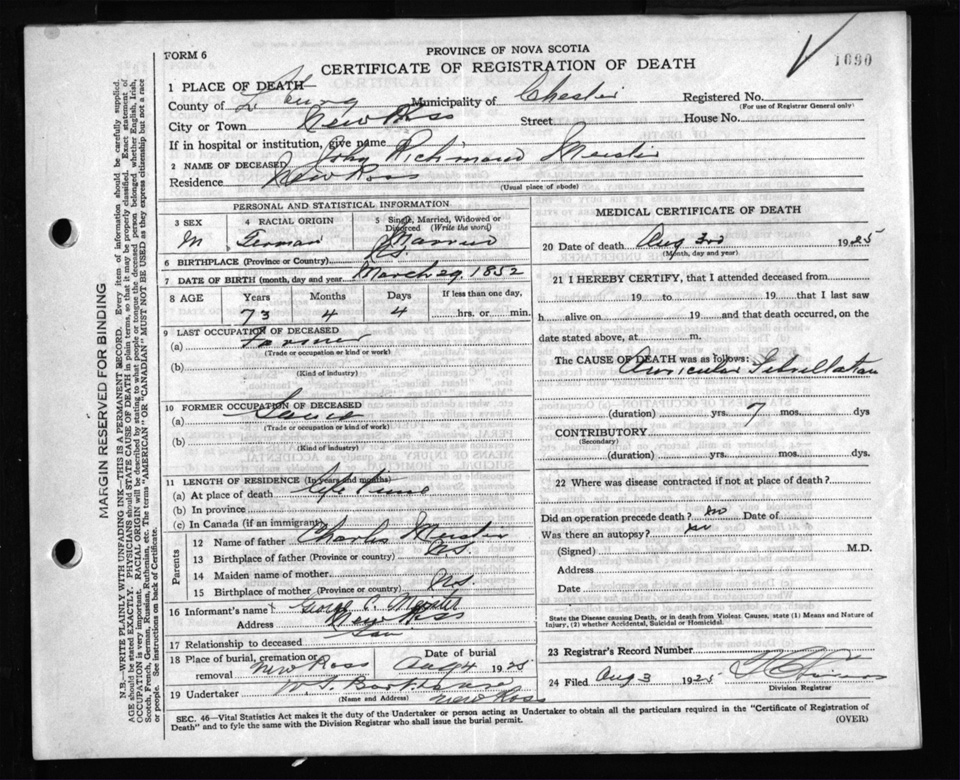 FORM 6
PROVINCE OF NOVA SCOTIA
CERTIFICATE OF REGISTRATION OF DEATH
1090
1 PLACE OF DEATH—
County of Municipality of Chester Registered No.
(For use of Registrar General only)
City or Town New Ross Street House No.
If in hospital or institution, give name
2 NAME OF DECEASED John Richmond Meister
Residence New Ross
(Usual place of abode)
PERSONAL AND STATISTICAL INFORMATION
3 SEX M
4 RACIAL ORIGIN German
5 Single, Married, Widowed or Divorced (Write the word) Married
6 BIRTHPLACE (Province or Country) N.S.
7 DATE OF BIRTH (month, day and year) March 29, 1852
8 AGE Years 73 Months 4 Days 4 If less than one day, hrs. or min.
9 LAST OCCUPATION OF DECEASED
(a) Farmer
(Trade or occupation or kind of work)
(b)
(Kind of industry)
10 FORMER OCCUPATION OF DECEASED
(a) Same
(Trade or occupation or kind of work)
(b)
(Kind of industry)
11 LENGTH OF RESIDENCE (In years and months)
(a) At place of death life time
(b) In province
(c) In Canada (if an immigrant)
Parents
12 Name of father Charles Meister
13 Birthplace of father (Province or country) N.S.
14 Maiden name of mother
15 Birthplace of mother (Province or country) N.S.
16 Informant's name George Meister
Address New Ross
17 Relationship to deceased Son
18 Place of burial, cremation or removal New Ross Date of burial Aug 4 1925
19 Undertaker
(Name and Address) New Ross
MEDICAL CERTIFICATE OF DEATH
20 Date of death Aug 3rd 1925
(Month, day and year)
21 I HEREBY CERTIFY, that I attended deceased from
19 to 19 that I last saw
h alive on 19 and that death occurred, on the
date stated above, at m.
The CAUSE OF DEATH was as follows:
Auricular Fibrillation
(duration) yrs. 7 mos. dys
CONTRIBUTORY
(Secondary)
(duration) yrs. mos. dys
22 Where was disease contracted if not at place of death?
Did an operation precede death? no Date of
Was there an autopsy? no
(Signed) M.D.
Address
Date
State the Disease causing Death, or in death from Violent Causes, state (1) Means and Nature of Injury, (2) whether Accidental, Suicidal or Homicidal.
23 Registrar's Record Number
24 Filed Aug 3 1925
Division Registrar
SEC. 46—Vital Statistics Act makes it the duty of the Undertaker or person acting as Undertaker to obtain all the particulars required in the "Certificate of Registration of
Death" and to fyle the same with the Division Registrar who shall issue the burial permit.
(OVER)
MARGIN RESERVED FOR BINDING
N.B.—WRITE PLAINLY WITH UNFADING INK—THIS IS A PERMANENT RECORD. Every item of information should be carefully supplied.
AGE should be stated EXACTLY. PHYSICIANS should STATE CAUSE OF DEATH in plain terms, so that it may be properly classified. Exact statement of
OCCUPATION is very important. RACIAL ORIGIN will be described by stating to what people or tongue the deceased person belonged whether English, Irish,
Scotch, French, German, Russian, Ruthenian, etc. The terms "AMERICAN" OR "CANADIAN" MUST NOT BE USED as they express citizenship but not a race
or people. See instructions on back of Certificate.